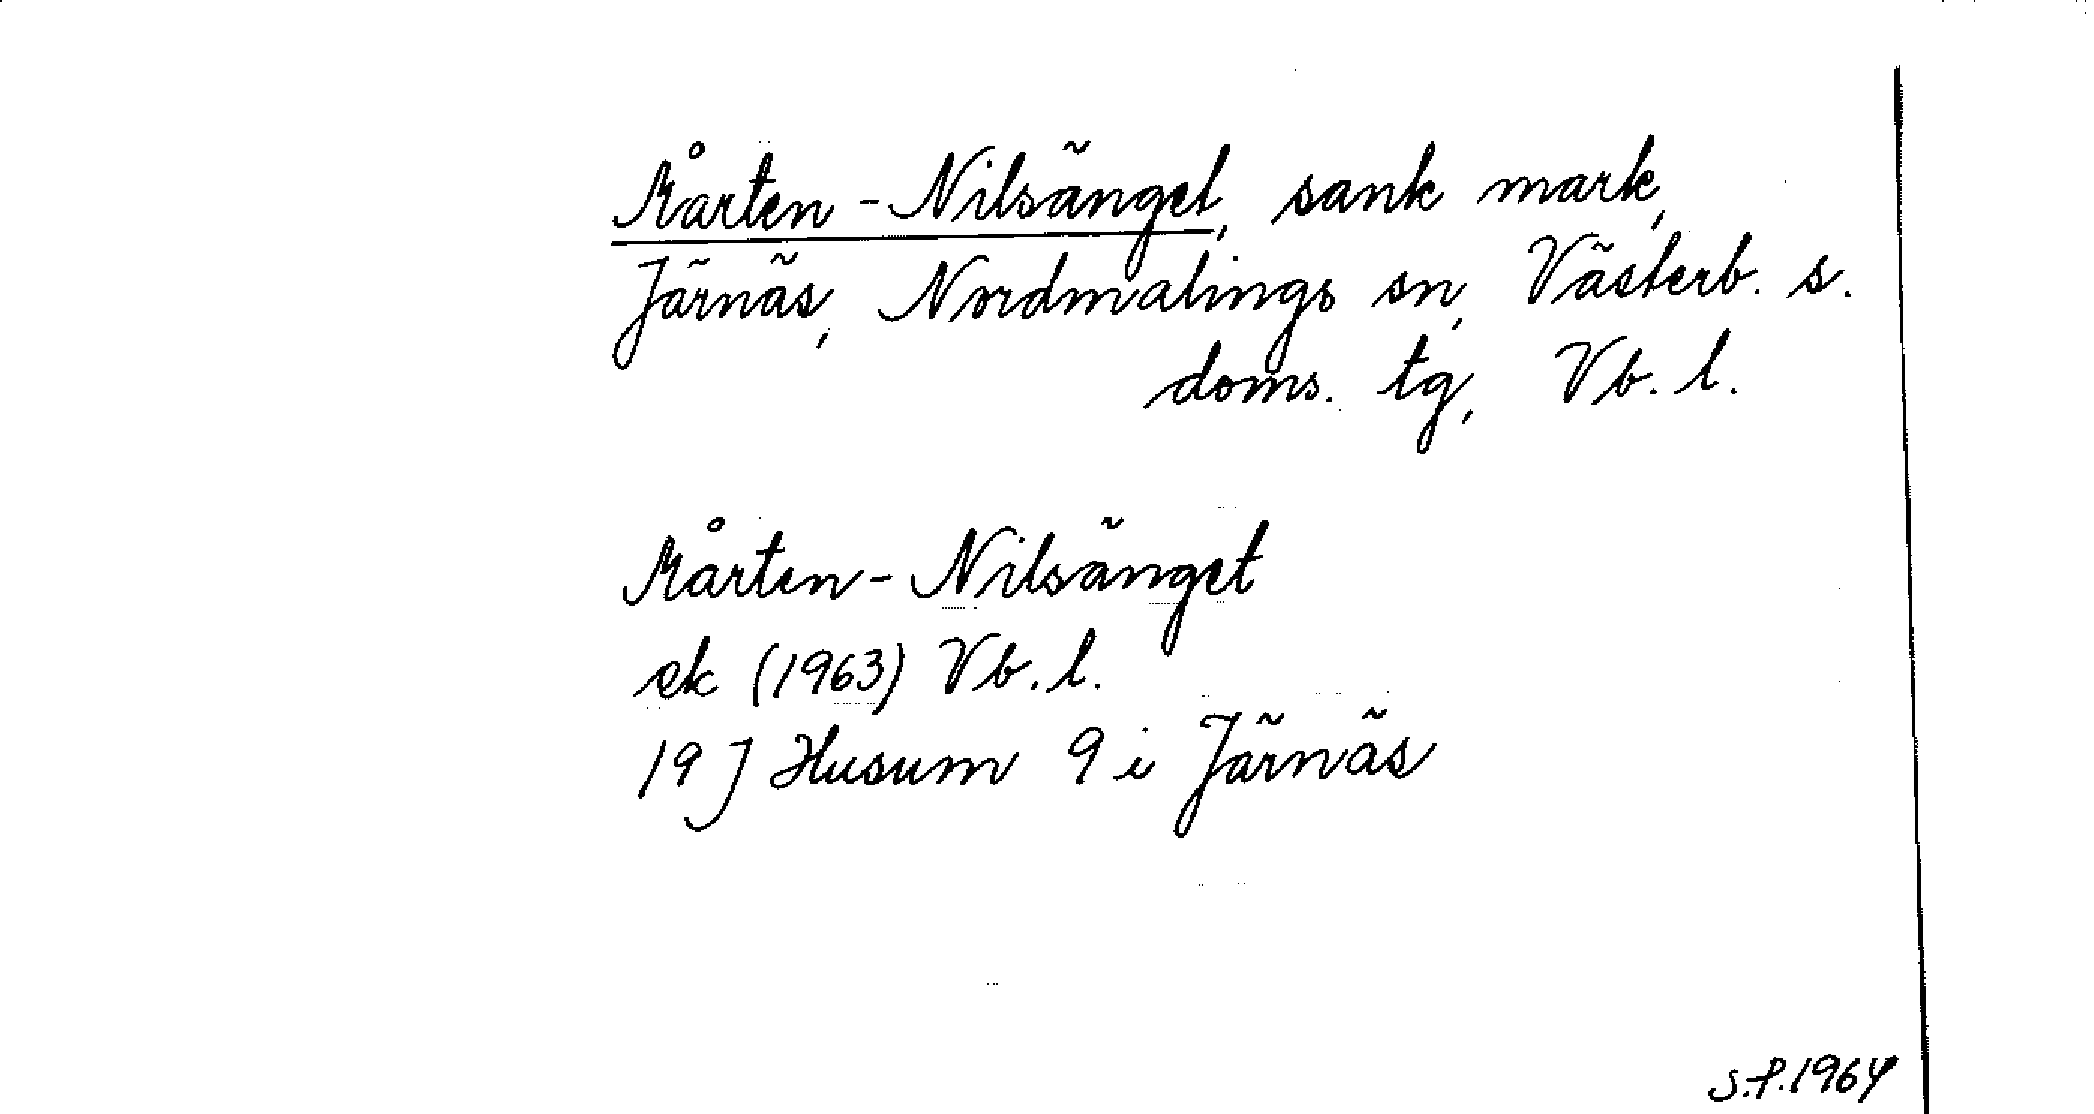 Mårten-Nilsänget, sank mark,
Järnäs, Nordmalings sn, Västerb. s.
doms. tg, Vb. l.
Mårten-Nilsänget
ek (1963) Vb. l.
19 J Husum 9 i Järnäs
S.P. 1964